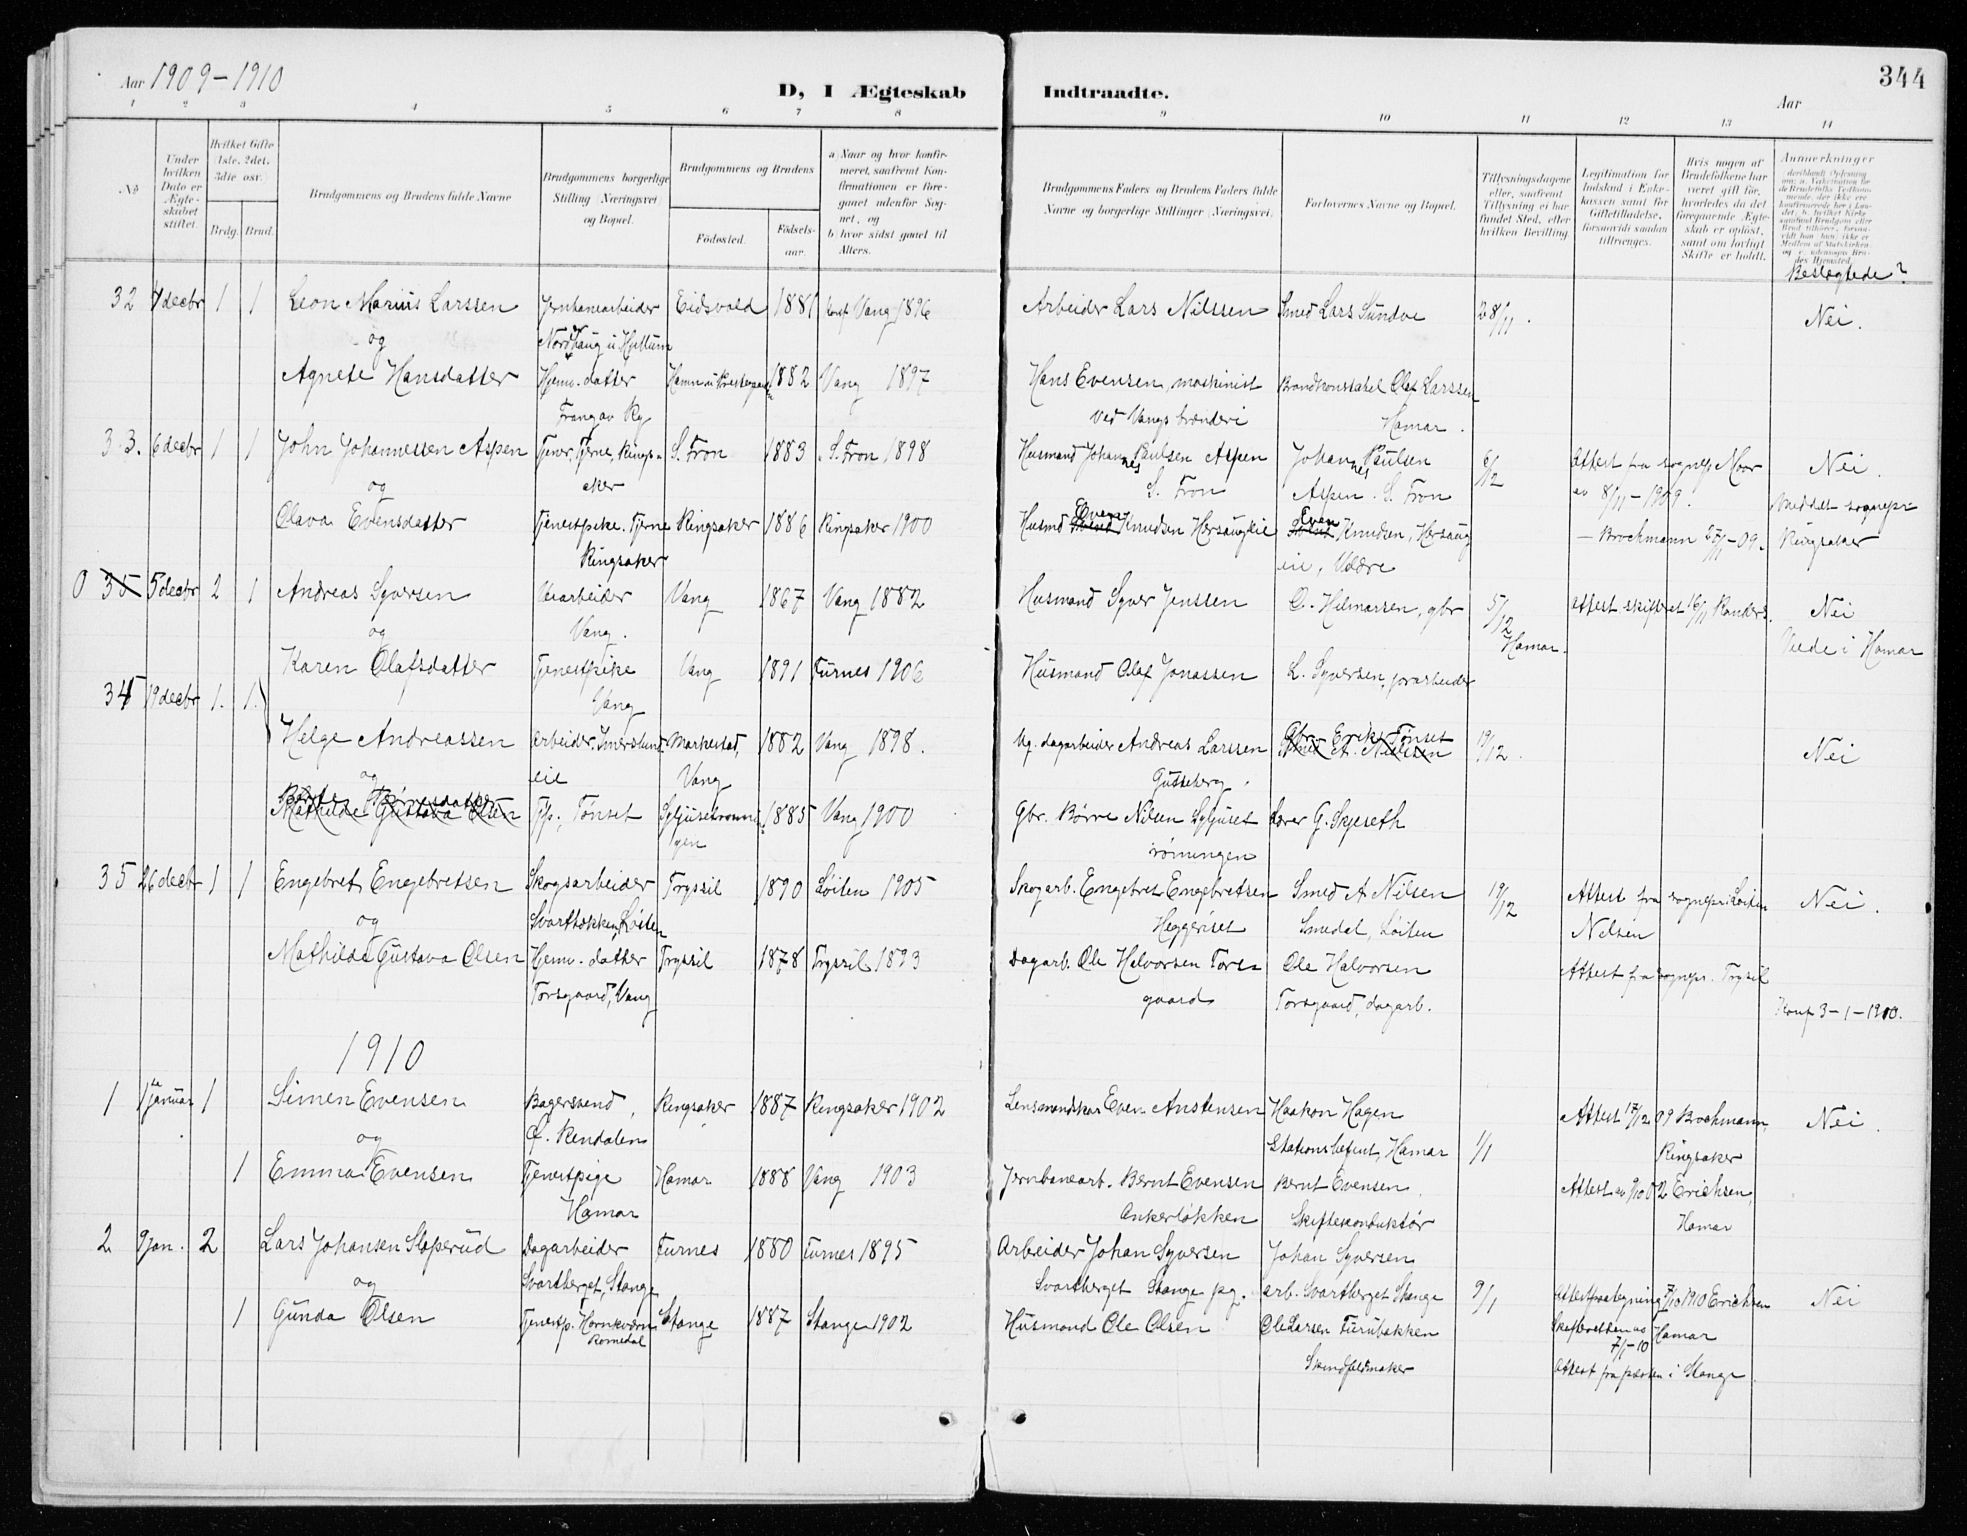 Aar 1909-1910
D, I Ægteskab Indtraadte.
Aar 344
1 2 3 4 5 6 7 8 9 10 11 12 13 14
No
Under hvilken Dato er Ægteskabet stiftet.
Hvilket Gifte 1ste, 2det, 3die osv.
Brdg. Brud.
Brudgommens og Brudens fulde Navne
Brudgommens borgerlige Stilling (Næringsvei) og Bopæl.
Brudgommens og Brudens
Fødested. Fødselsaar.
a) Naar og hvor konfirmeret, saafremt Konfirmationen er foregaaet udenfor Sognet, og
b) hvor sidst gaaet til Alters.
Brudgommens Faders og Brudens Faders fulde Navne og borgerlige Stillinger (Næringsvei).
Forlovernes Navne og Bopæl.
Tillysningsdagene eller, saafremt Tillysning ei har fundet Sted, efter hvilken Bevilling
Legitimation for Indskud i Enkekassen samt for Giftetilladelse, forsaavidt saadan tiltrænges.
Hvis nogen af Brudefolkene har været gift før, hvorledes da det foregaaende Ægteskab er opløst, samt om lovligt Skifte er holdt.
Anmerkninger
Beslægtede?
32 7 decbr 1 1 Leon Marius Larssen Jernbanearbeider Eidsvold 1881 Konf. Vang 1896 Arbeider Lars Nilssen Smed Lars Sundve 28/11. Nei.
og Nordhaug u Hjellum
Agnete Hansdatter Hjemv. datter 1882 Vang 1897 Hans Evensen, maskinist Brandkonstabel Olaf Larssen
ved Vangs brænderi Hamar.
33. 6 decbr 1 1 John Johannessen Aspen Tjener, Tjerne, Ringsaker S. Fron 1883 S. Fron 1898 Husmand Johannes Paulsen Aspen Johannes Paulsen 6/12 Attest fra sognep. Moor Nei.
og S. Fron Aspen. S. Fron av 8/11-1909. Meddelt sognepr
Olava Evensdatter Tjenestpike. Tjerne Ringsaker 1886 Ringsaker 1900 Husmd Even Knudsen Hersaugeie Even Knudsen, Hersaug - Brochmann -09. Ringsaker
Ringsaker eie, Veldre
0 35 5 decbr 2 1 Andreas Syversen Veiarbeider Vang 1867 Vang 1882 Husmand Syver Jenssen O. Hilmarsen, gbr 5/12 Attest skifteret 16/11 Nei
og Vang. Hamar. Viede i Hamar
Karen Olafsdatter Tjenestpike Vang 1891 Furnes 1906 Husmand Olaf Jonassen L. Syversen, jordarbeider
Vang
34 19 decbr 1. 1.
Helge Andreassen Arbeider, Imerslund Markestad, 1882 Vang 1898. Ug. dagarbeider Andreas Larssen Gbr. Erik Tønset 19/12. Nei
og eie Vang Gusseberg. Smed A. Nielsen
Mathilde Gustava Olsen Tjp., Tønset 1885 Vang 1900 Gbr. Børre Nilsen Sljuset Lærer G. Skjeseth
rømningen
35 26 decbr 1 1 Engebret Engebretsen Skogsarbeider Trysil 1890 Løiten 1905 Skogarb. Engebret Engebretsen Smed A Nilsen 19/12 Attest fra sognepr. Løiten Nei.
og Svartbækken, Løiten Heggeriset Smedal, Løiten Nelsen
Mathilda Gustava Olsen Hjemv. datter Trysil 1878 Trysil 1893 Dagarb. Ole Halvorsen Tors- Ole Halvorsen Attest fra sognepr. Trysil
Torsgaard, Vang gaard Torsgaard, dagarb. Konf 3-1-1900.
1910
1 1 januar 1 Simen Evensen Bagersvend, Ringsaker 1887 Ringsaker 1902 Even Anstensen Haakon Hagen Attest 17/12 09 Brochmann Nei.
og Ø. Rendalen Stationsbetjent, Hamar 1/1 Ringsaker
1 Emma Evensen Tjenestpige Hamar 1888 Vang 1903 Jernbanearb. Bernt Evensen Bernt Evensen Attest av 9/10 02 Erichsen,
Hamar Ankerløkken Skiftekonduktør Hamar
2 9 jan. 2 Lars Johansen Sloperud Dagarbeider Furnes 1880 Furnes 1895 Arbeider Johan Syversen Johan Syversen
og Svartberget, Stange Svartberget Stange pg. arb. Svartberget Stange 9/1 1910 Erichsen Nei
1 Gunda Olsen Tjenestp. Hornkværn Stange 1887 Stange 1902 Husmand Ole Olsen Ole Larsen Furubakken Hamar
Romedal Skindfeldmaker 7/1-10
Attest fra presten i Stange